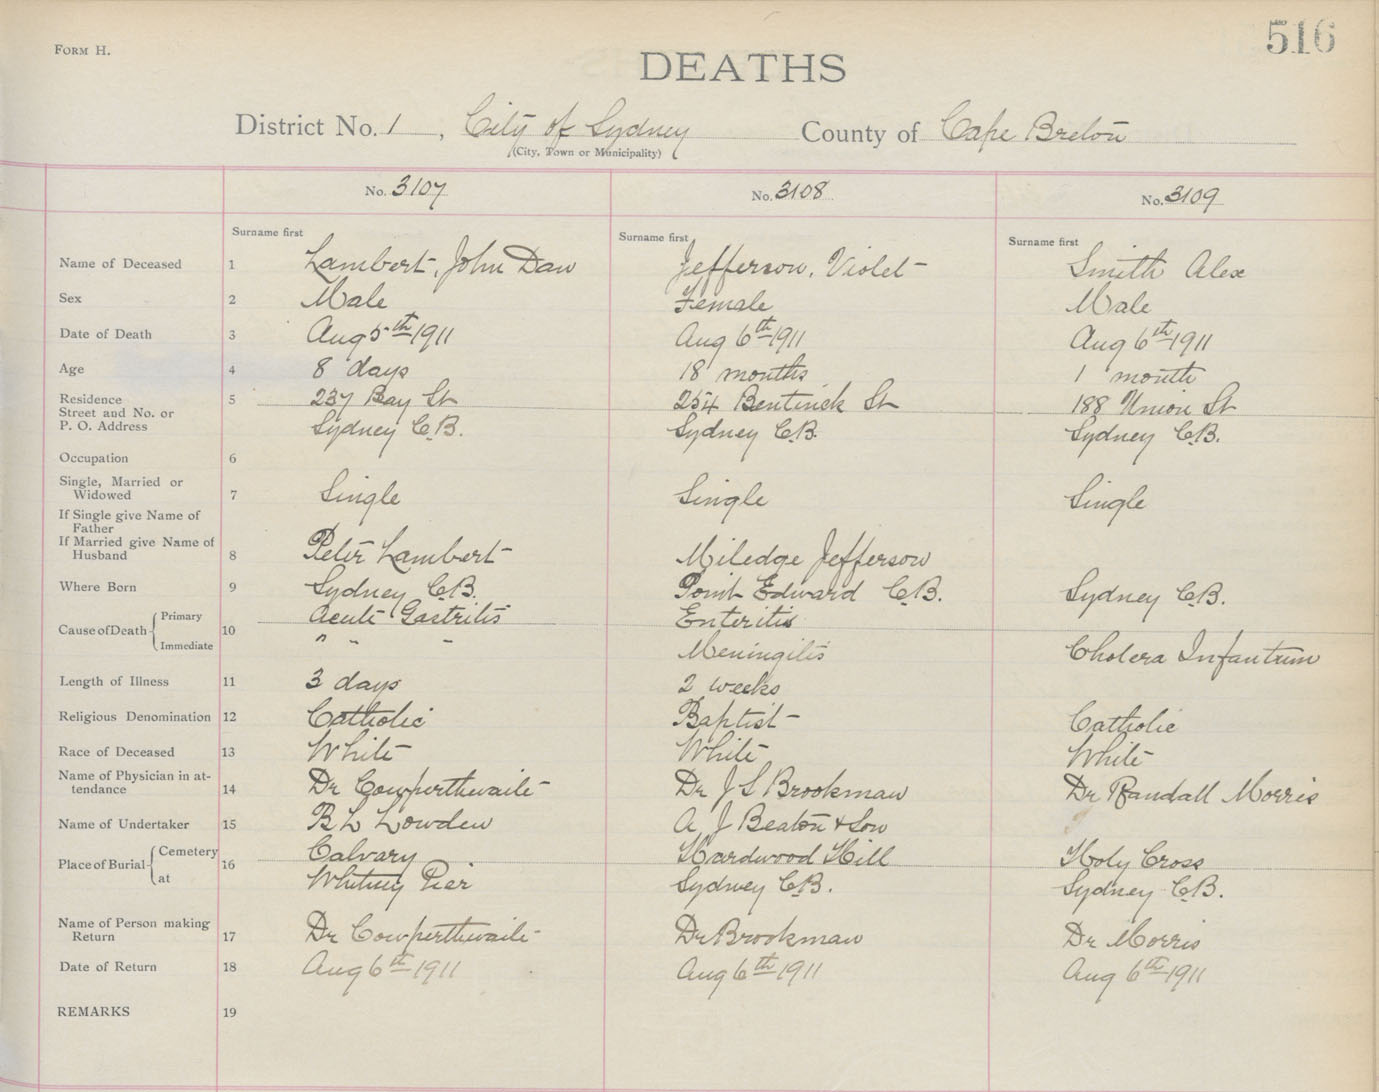 516
FORM H.
DEATHS
District No. 1, City of Sydney County of Cape Breton
(City, Town or Municipality)
No. 3107 No. 3108 No. 3109
Surname first Surname first Surname first
Name of Deceased 1 Lambert, John Dan Jefferson, Violet Smith Alex
Sex 2 Male Female Male
Date of Death 3 Aug 5th 1911 Aug 6th 1911 Aug 6th 1911
Age 4 8 days 18 months 1 month
Residence 5 237 Bay St 254 Bentinick St 188 Union St
Street and No. or
P. O. Address Sydney C.B. Sydney C.B. Sydney C.B.
Occupation 6
Single, Married or
Widowed 7 Single Single Single
If Single give Name of
Father
If Married give Name of
Husband 8 Peter Lambert Miledge Jefferson
Where Born 9 Sydney C.B. Point Edward C.B. Sydney C.B.
Cause of Death 10 Primary Acute Gastritis Enteritis
Immediate " " " Meningitis Cholera Infantum
Length of Illness 11 3 days 2 weeks
Religious Denomination 12 Catholic Baptist Catholic
Race of Deceased 13 White White White
Name of Physician in at-
tendance 14 Dr Cowperthwaite Dr J S Brookman Dr Randall Morris
Name of Undertaker 15 B L Lowden A J Beaton & Son
Place of Burial 16 Cemetery Calvary Hardwood Hill Holy Cross
at Whitney Pier Sydney C.B. Sydney C.B.
Name of Person making
Return 17 Dr Cowperthwaite Dr Brookman Dr Morris
Date of Return 18 Aug 6th 1911 Aug 6th 1911 Aug 6th 1911
REMARKS 19